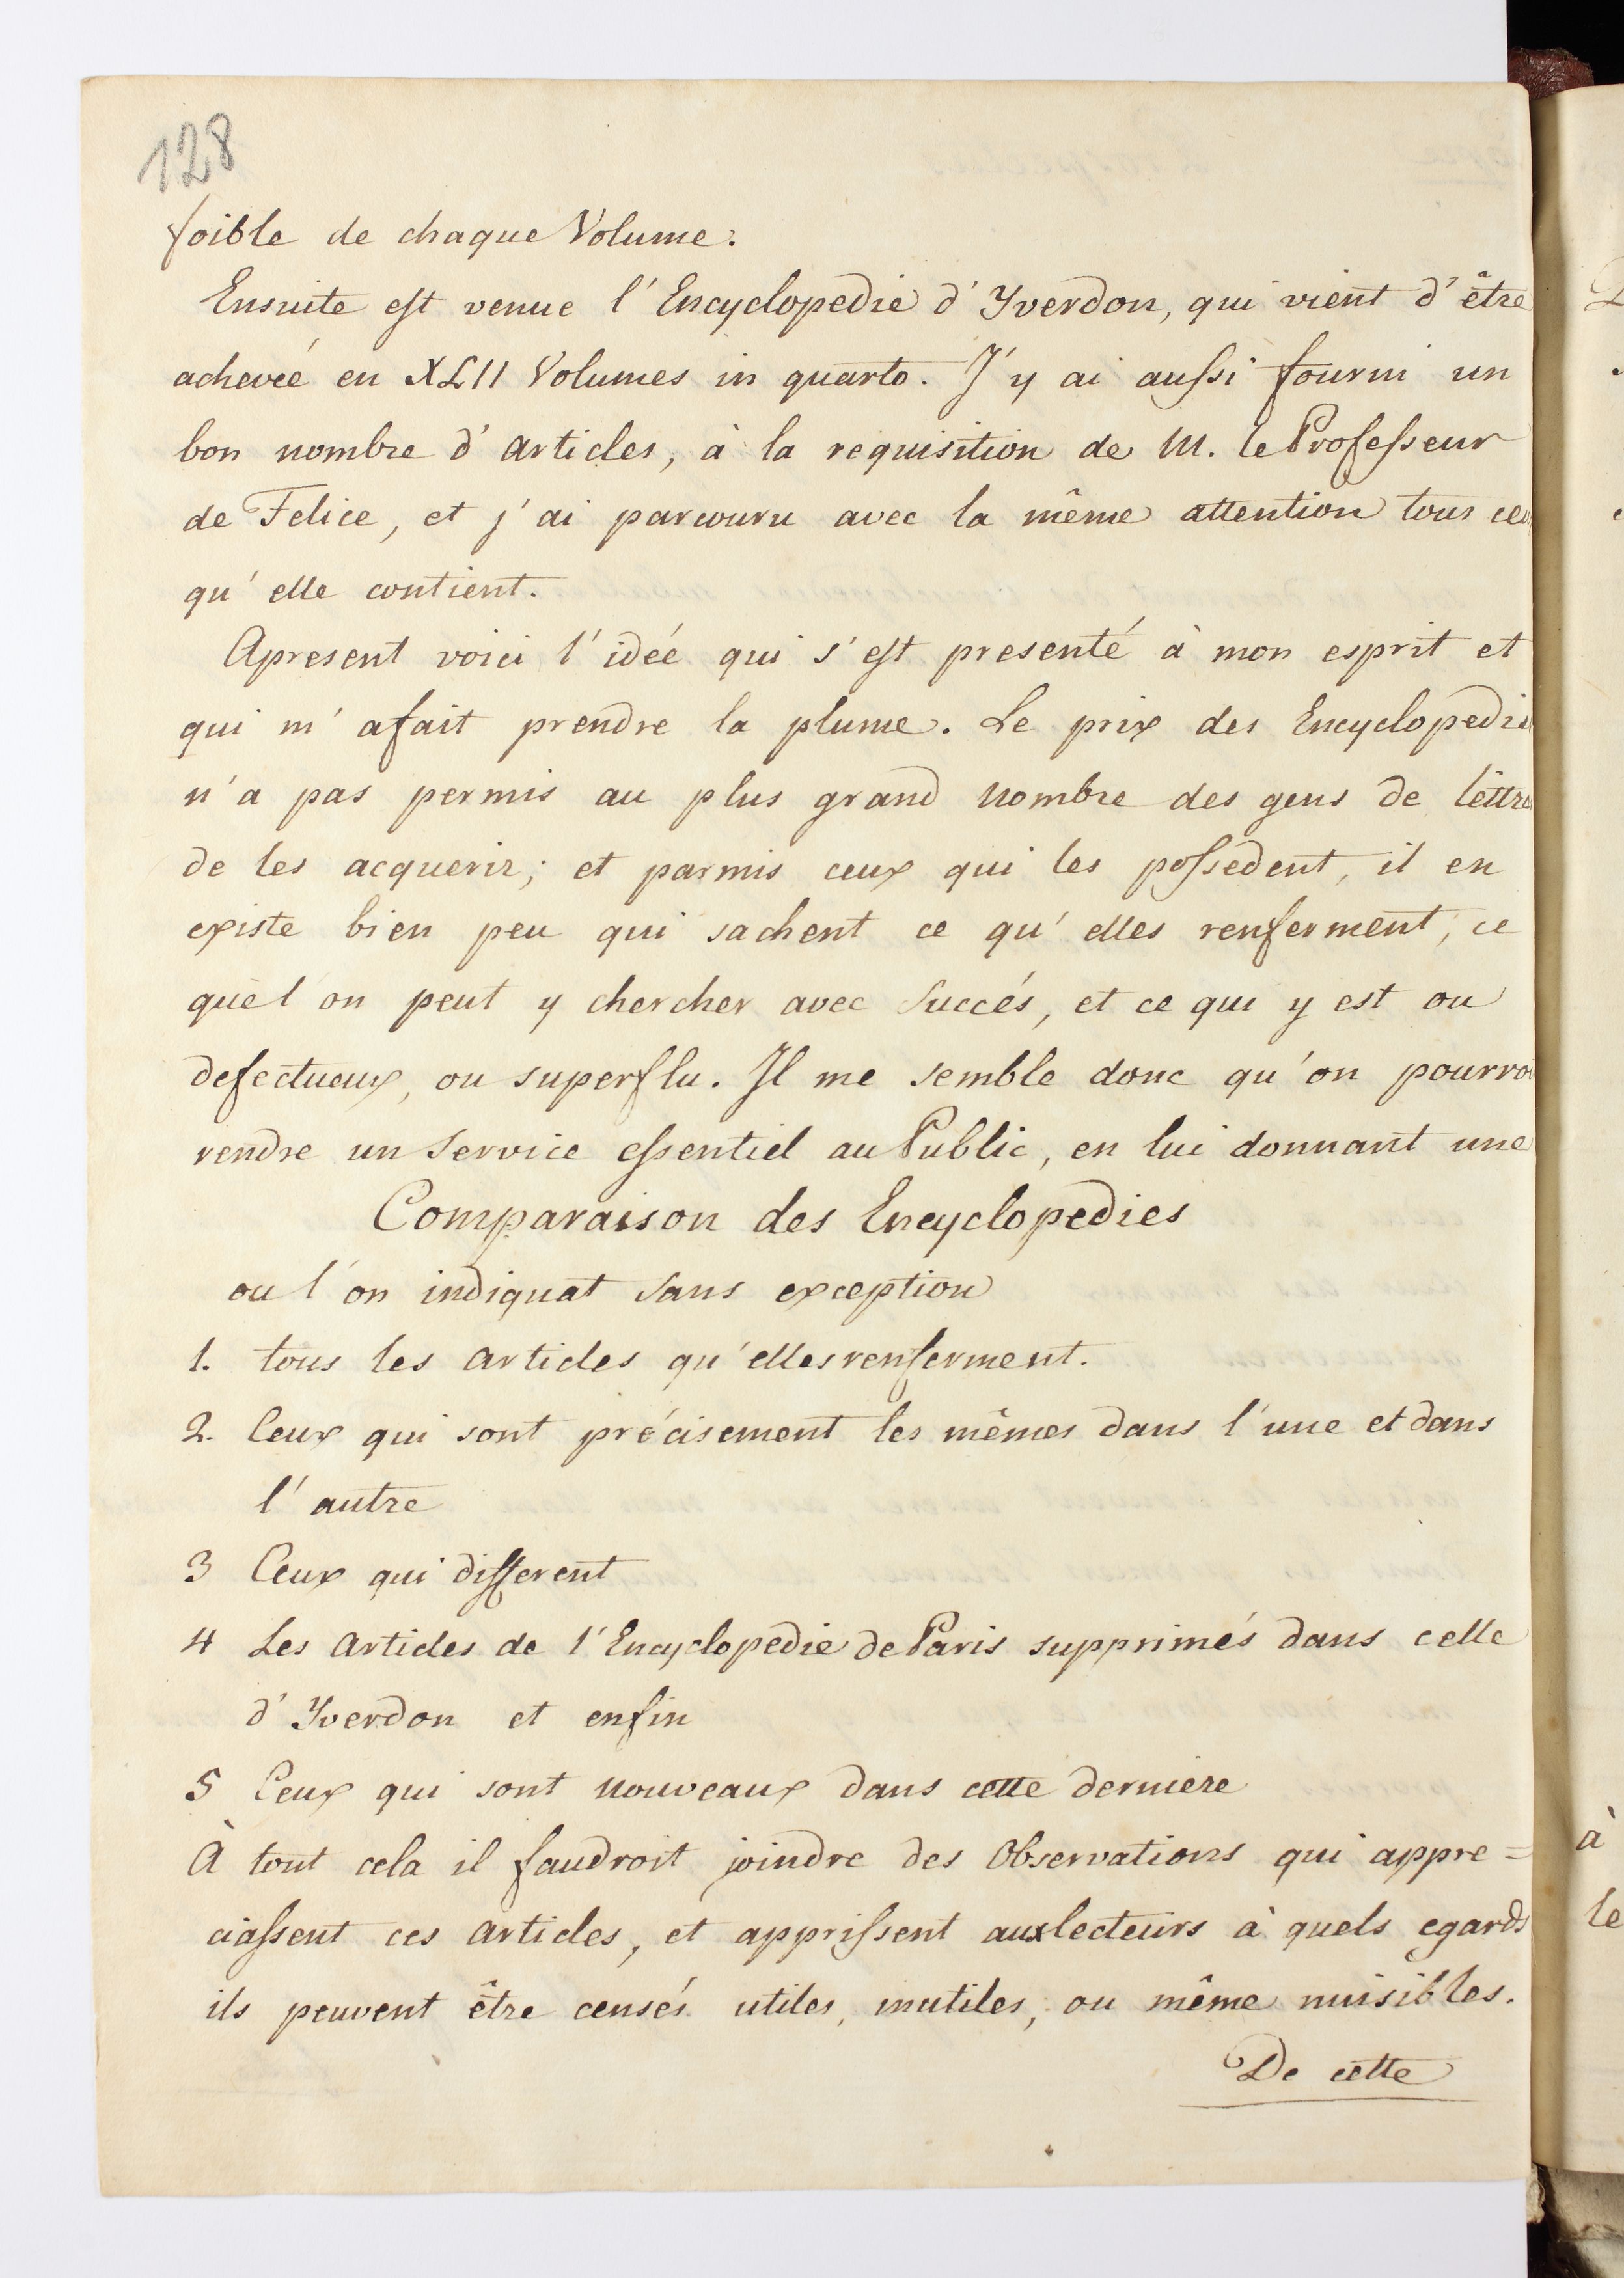 128
foible de chaque Volume.
Ensuite est venue l'Encyclopedie d'Yverdon, qui vient d'être
acheveé en XLII Volumes in quarto. J'y ai aussi fourni un
bon nombre d'articles, à la requisition de M. le Professeur
de Felice, et j'ai parcouru avec la même attention tous ce
qu'elle contient.
Apresent voici l'ideé qui s'est presenté à mon esprit et
qui m'afait prendre la plume. Le prix des Encyclopedie
n'a pas permis au plus grand nombre des gens de lettre
de les acquerir; et parmis ceux qui les possedent, il en
existe bien peu qui sachent ce qu'elles renferment, ce
que l'on peut y chercher avec Succés, et ce qui y est ou
defectueux, ou superflu. Il me semble donc qu'on pourroi
rendre un Service essentiel au Public, en lui donnant une
Comparaison des Encyclopedies
ou l'on indiquat sans exception
1. tous les articles qu'elles renferment.
2. Ceux qui sont précisement les mêmes dans l'une et dans
l'autre
3 Ceux qui different
4 Les articles de l'Encyclopedie de Paris supprimés dans celle
d'Yverdon et enfin
5 Ceux qui sont nouveaux dans cette derniere
À tout cela il faudroit joindre des Observations qui appre=
ciassent ces articles, et apprissent aux lecteurs à quels egards
ils peuvent être censés utiles, inutiles, ou même nuisibles.
De cette
à
le